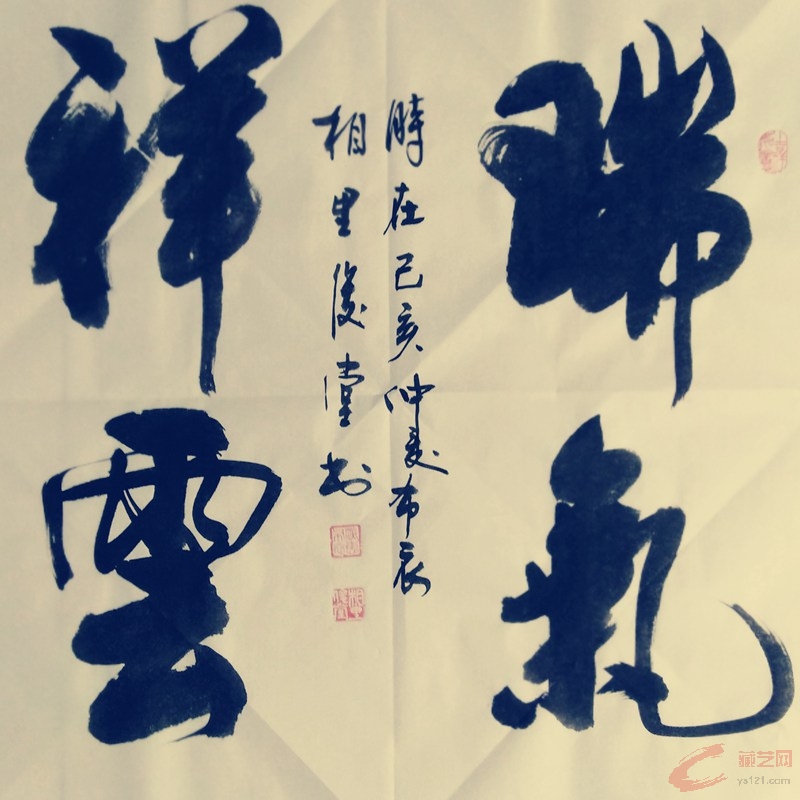 瑞氣
祥雲
時在己亥仲夏布衣
相里俊堂書
藏艺网
ys121.com